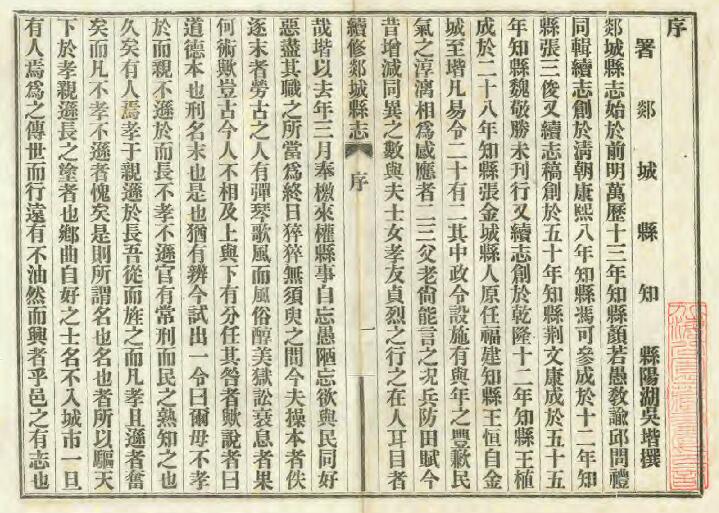 序
署郯城縣知縣陽湖吳堦撰
郯城縣志始於前明萬歷十三年知縣顏若愚教諭邱問禮
同輯續志創於清朝康熙八年知縣馮可參成於十二年知
縣張三俊又續志稿創於五十年知縣荆文康成於五十五
年知縣魏敬勝未刊行又續志創於乾隆十二年知縣王植
成於二十八年知縣張金城縣人原任福建知縣王恒自金
城至堦凡易令二十有二其中政令設施有與年之豐歉民
氣之淳漓相為感應者二三父老尙能言之况兵防田賦今
昔增減同異之數與夫士女孝友貞烈之行之在人耳目者
續修郯城縣志
序
一
哉堦以去年三月奉檄來權縣事自忘愚陋忘欲與民同好
惡盡其職之所當為終日猝猝無須臾之間今夫操本者佚
逐末者勞古之人有彈琴歌風而風俗醇美獄訟衰息者果
何術歟豈古今人不相及上與下有分任其咎者歟說者曰
道德本也刑名末也是也猶有辨今試出一令曰爾毋不孝
於而親不遜於而長不孝不遜官有常刑而民之熟知之也
久矣有人焉孝于親遜於長吾從而旌之而凡孝且遜者奮
矣而凡不孝不遜者愧矣是則所謂名也名也者所以驅天
下於孝親遜長之塗者也鄉曲自好之士名不入城市一旦
有人焉為之傳世而行遠有不油然而興者乎邑之有志也